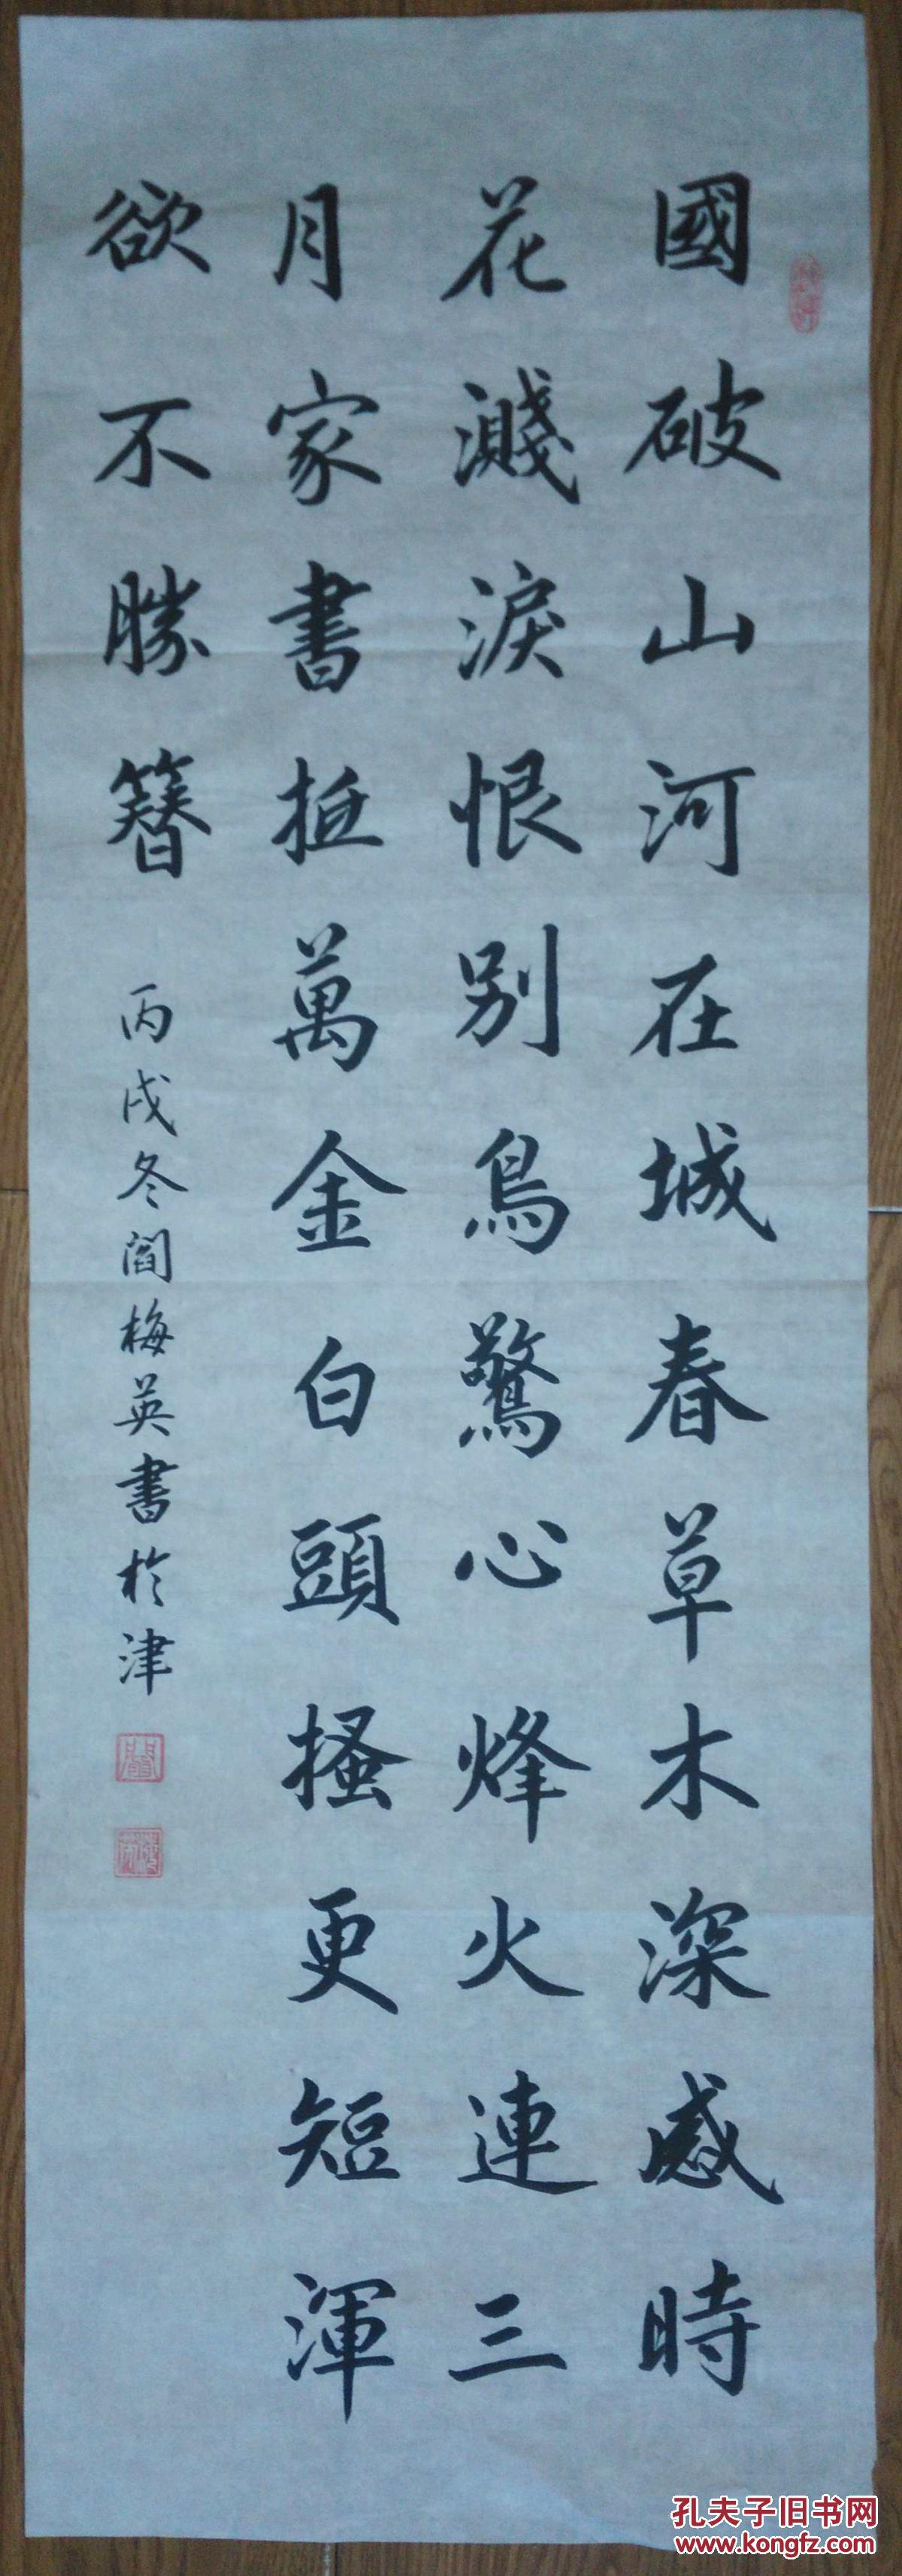 國破山河在城春草木深感時
花濺淚恨別鳥驚心烽火連三
月家書抵萬金白頭搔更短渾
欲不勝簪
丙戌冬閻梅英書於津
孔夫子旧书网
www.kongfz.com